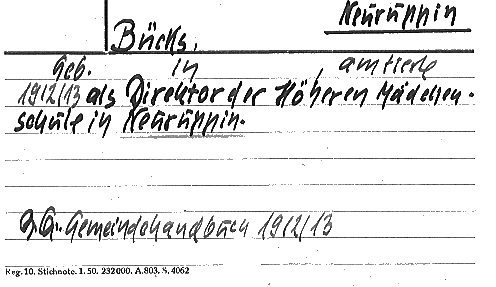 Neuruppin
Bücks,
geb. in , amtierte
1912/13 als Direktor der Höheren Mädchen-
schule in Neuruppin.
Gemeindehandbuch 1912/13
Reg. 10. Stichnote. 1. 50. 232000. A.803. S. 4062